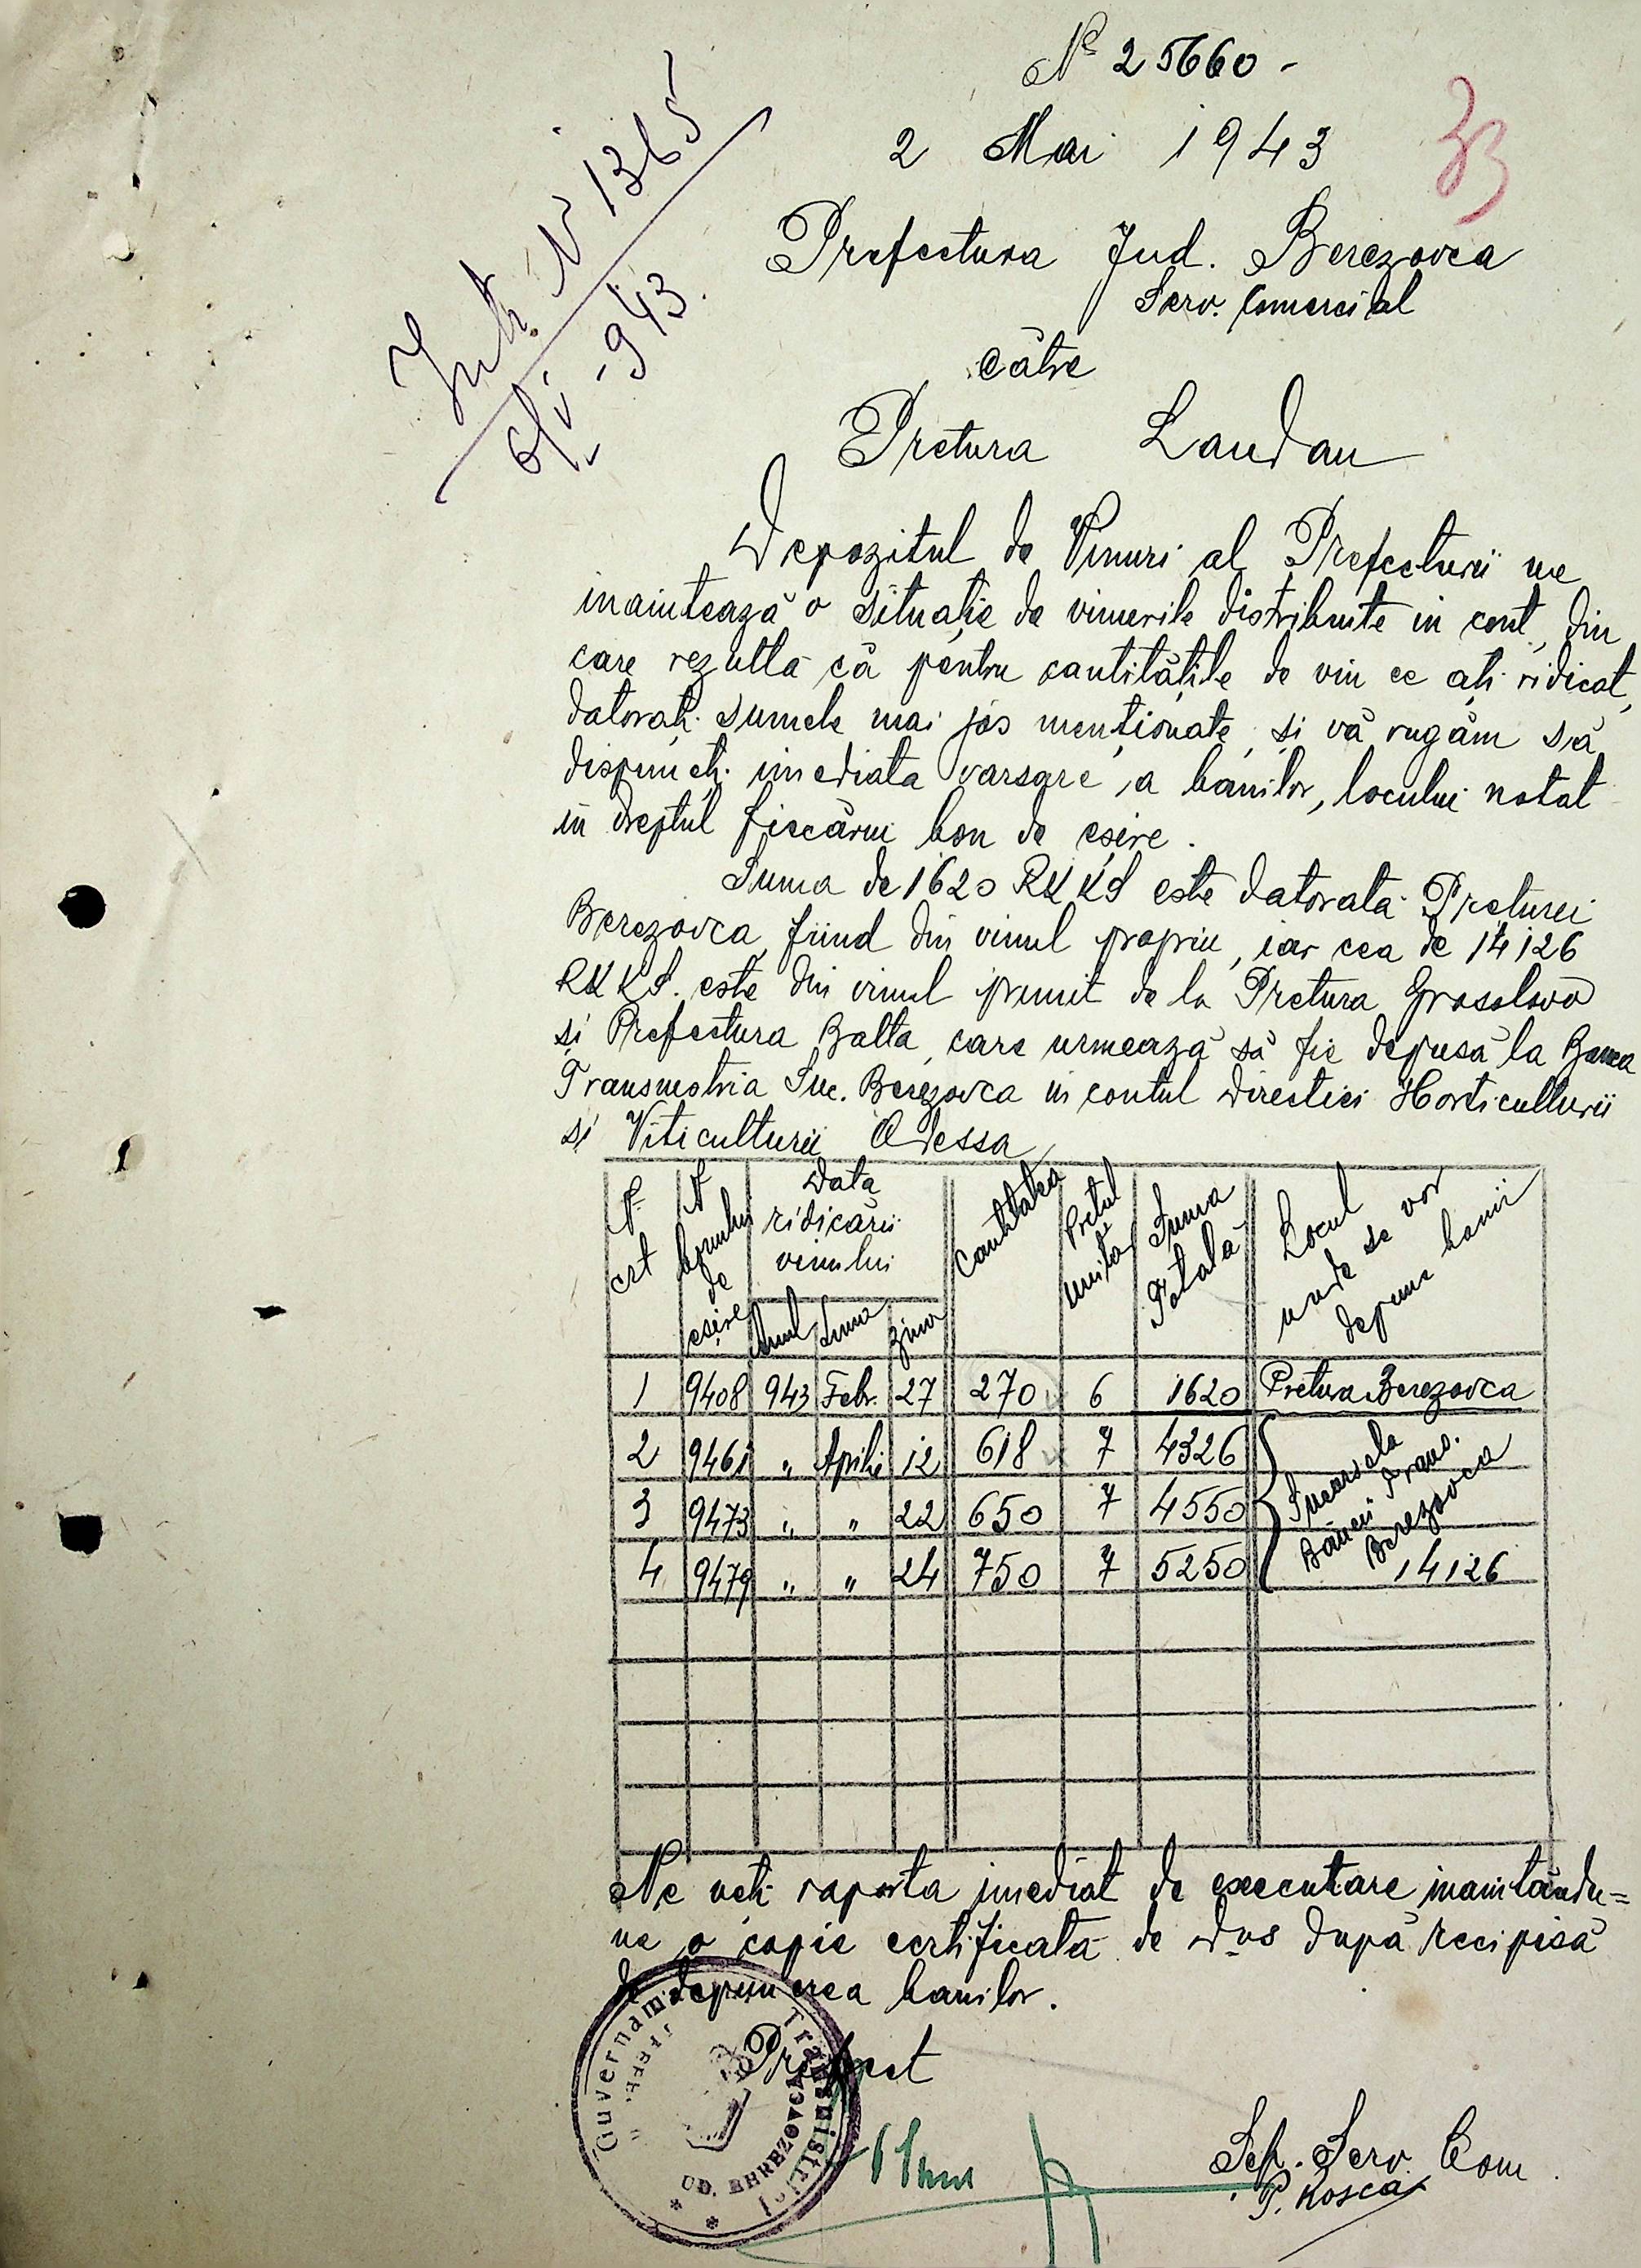 Nº 25660 -
2 Mai 1943
33
Intr. N 1365
6/V - 943.
Prefectura Jud. Berezovca
Serv. Comercial
către
Pretura Landau
Depozitul de Vinuri al Prefecturii ne
inaintează o situație de vinurile distribuite in cont, din
care rezultă că pentru cantitățile de vin ce ați ridicat,
datorați sumele mai jos menționate, și vă rugăm să
dispuneți imediata varsare a banilor, locului notat
in dreptul fiecărui bon de eșire.
Suma de 1620 RKKS este datorată Preturei
Berezovca, fiind din vinul propriu, iar cea de 14126
RKKS. este din vinul primit de la Pretura Grosolovo
și Prefectura Balta, care urmează să fie depusă la Banca
Transnistria Suc. Berezovca in contul Directiei Horticulturii
si Viticulturii Odessa
N- crt
N bonului de eșire
Data ridicării vinului
Anul Luna ziua
Cantitatea
Prețul unitar
Suma Totală
Locul unde se vor depune banii
1 9408 943 Febr. 27 270 6 1620 Pretura Berezovca
2 9461 " Aprilie 12 618 7 4326
3 9473 " " 22 650 7 4550
4 9479 " " 24 750 7 5250
Sucursala
Băncii Trans.
Berezovca
14126
Ne veți raporta imediat de executare inaintându=
ne o copie certificată de Dvs după recipisă
de depunerea banilor.
Prefect
Guvernamântul Transnistriei
JUD. BEREZOVCA
Șef. Serv. Com.
P. Rosca